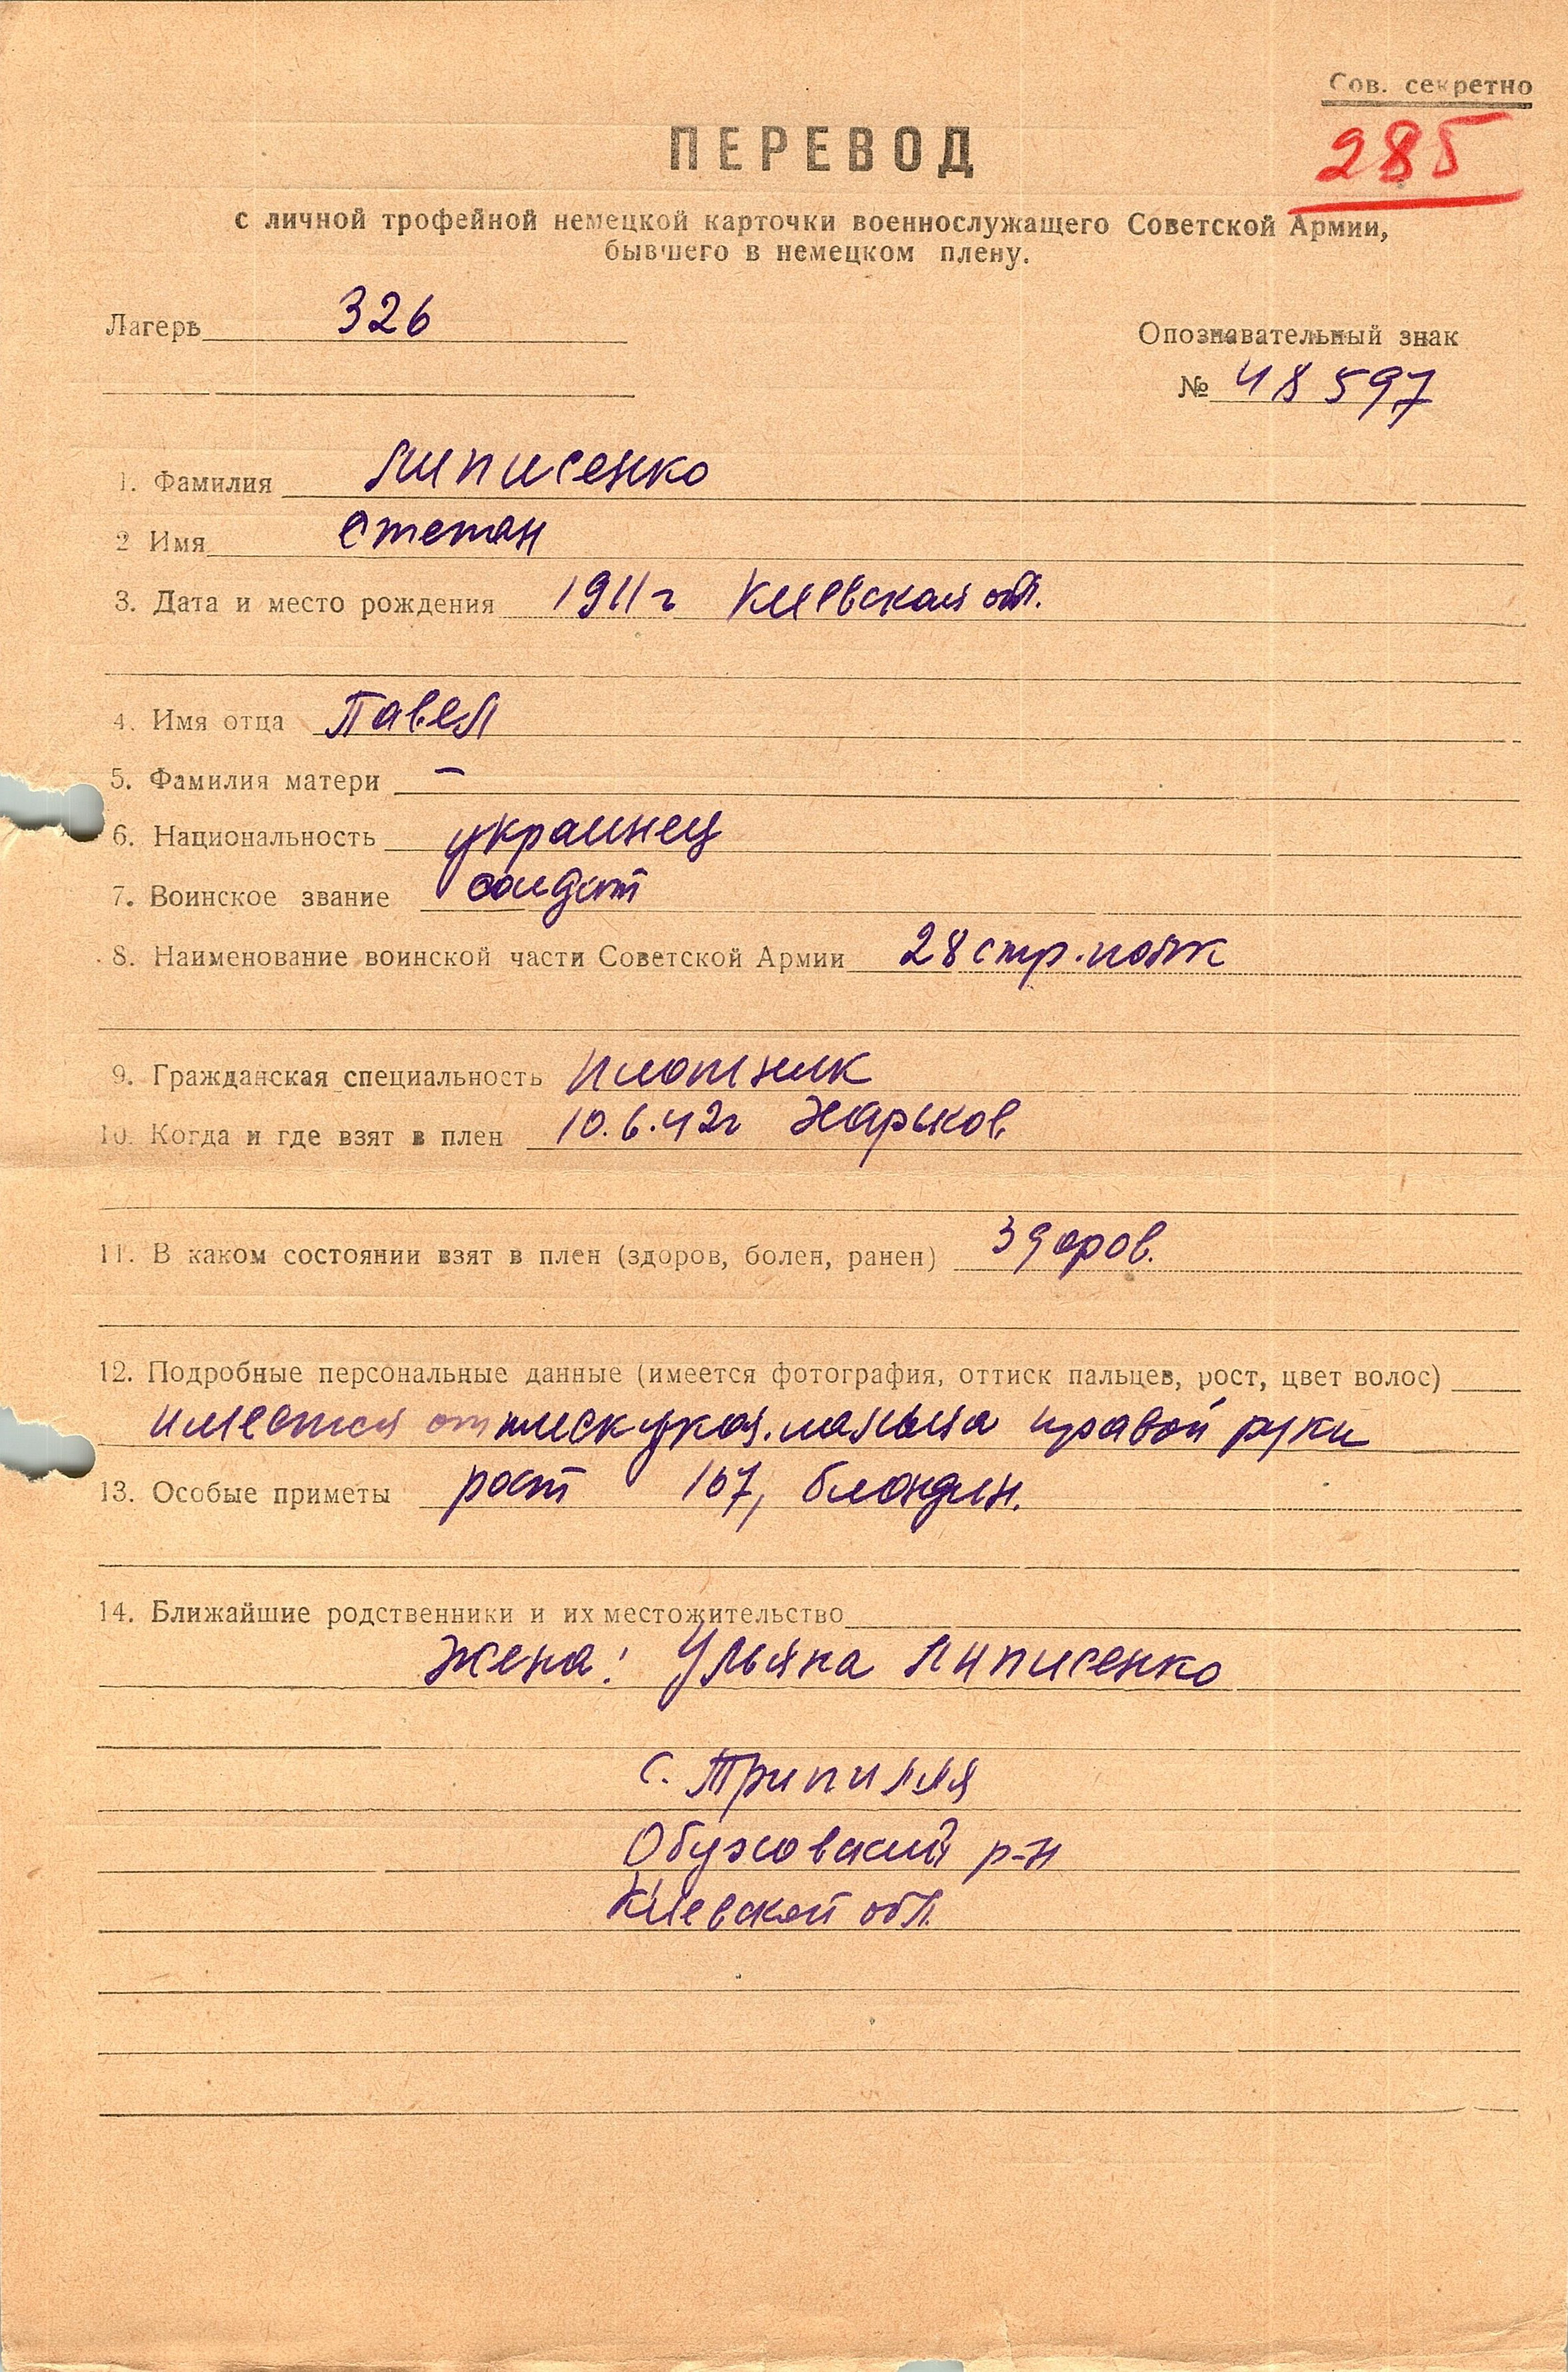 Сов. секретно
285
ПЕРЕВОД
с личной трофейной немецкой карточки военнослужащего Советской Армии,
бывшего в немецком плену.
Лагерь 326
Опознавательный знак
№ 48597
1. Фамилия Липисенко
2 Имя Степан
3. Дата и место рождения 1911г Киевская обл.
4. Имя отца Павел
5. Фамилия матери —
6. Национальность украинец
7. Воинское звание солдат
8. Наименование воинской части Советской Армии 28 стр. полк
9. Гражданская специальность плотник
10. Когда и где взят в плен 10.6.42г Харьков
11. В каком состоянии взят в плен (здоров, болен, ранен) здоров.
12. Подробные персональные данные (имеется фотография, оттиск пальцев, рост, цвет волос)
имеется оттиск указ. пальца правой руки
13. Особые приметы рост 167, блондин.
14. Ближайшие родственники и их местожительство
Жена: Ульяна Липисенко
с. Трипилля
Обуховский р-н
Киевской обл.